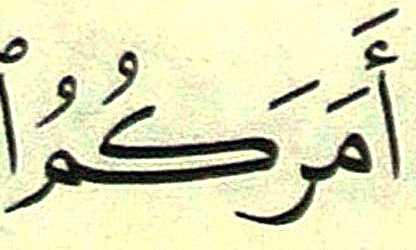 أَمَرَكُمُ ٱ